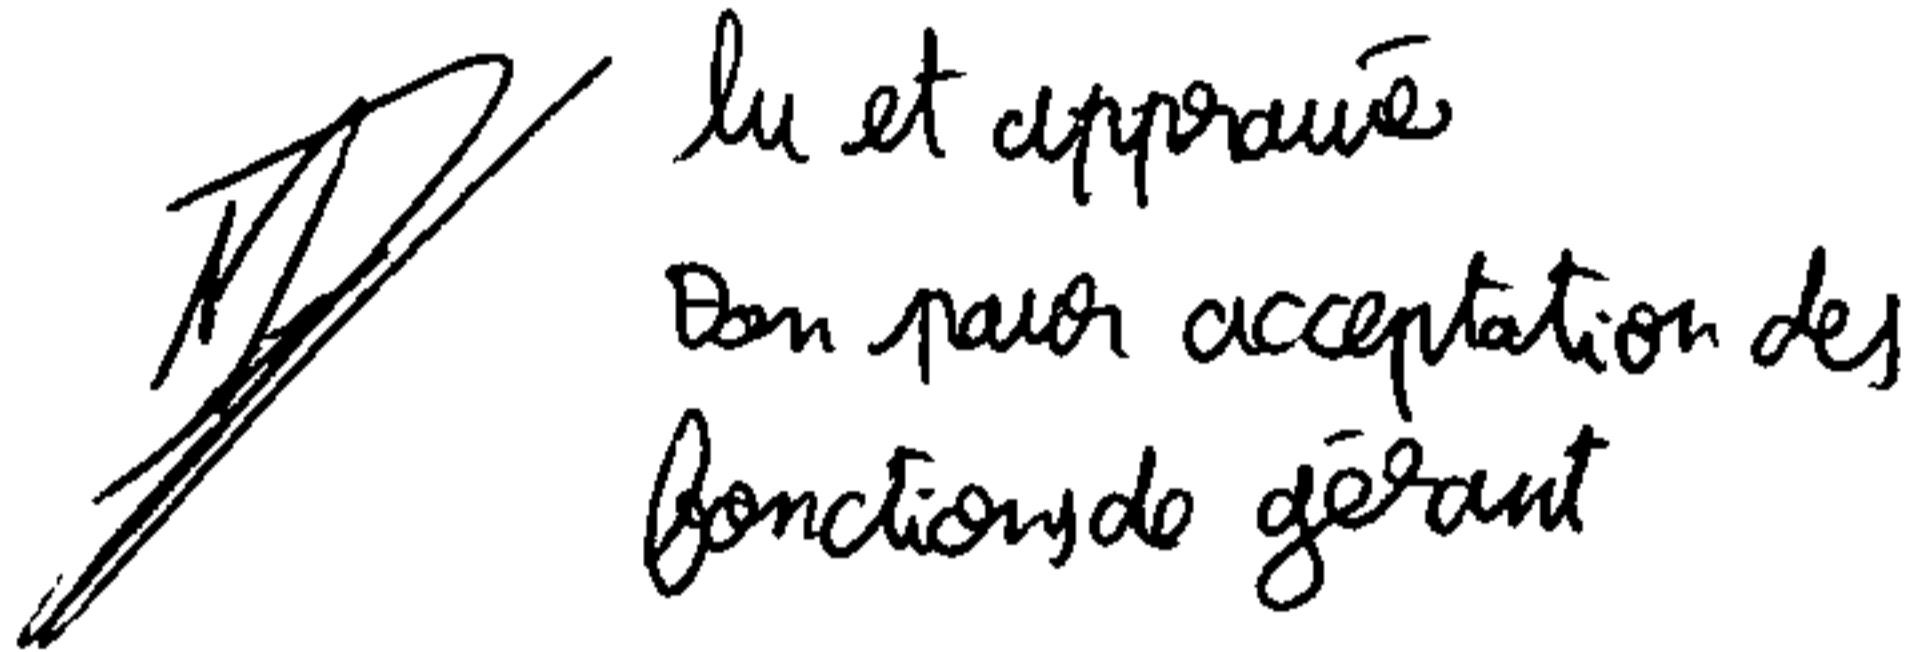 lu et approuvé
Bon pour acceptation des
fonctions de gérant